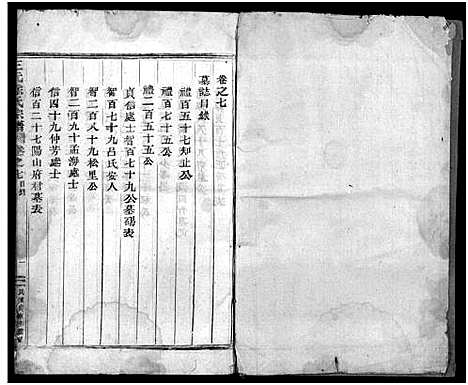 卷之七
墓誌目錄
禮百五十七知止公
禮百七十五公
禮二百五十五公
貞信處士智百七十九公墓碣表
智百七十九呂氏安人
智二百八十九松里公
智二百九十孟海處士
信四十九仲芳處士
信百二十七陽山府君墓表
氏宗譜
卷之七
目錄
一